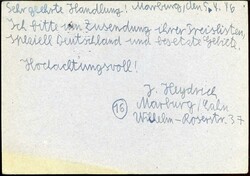 Sehr geehrte Handlung! Marburg, den 5. V. 46
Ich bitte um Zusendung ihrer Preislisten,
speziell Deutschland und besetzte Gebiete.
Hochachtungsvoll!
J. Heydrich
(16) Marburg/Lahn
Wilhelm-Roserstr. 37